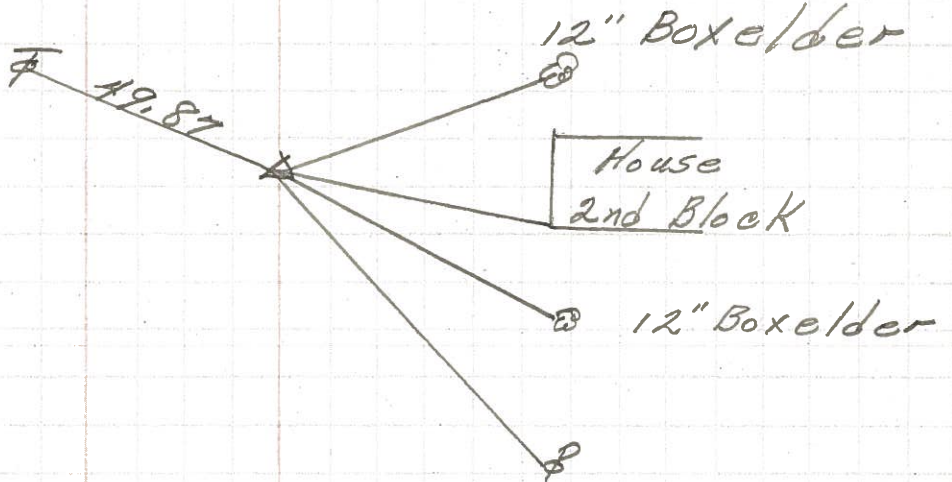 12" Boxelder
49.87
House
2nd Block
12" Boxelder